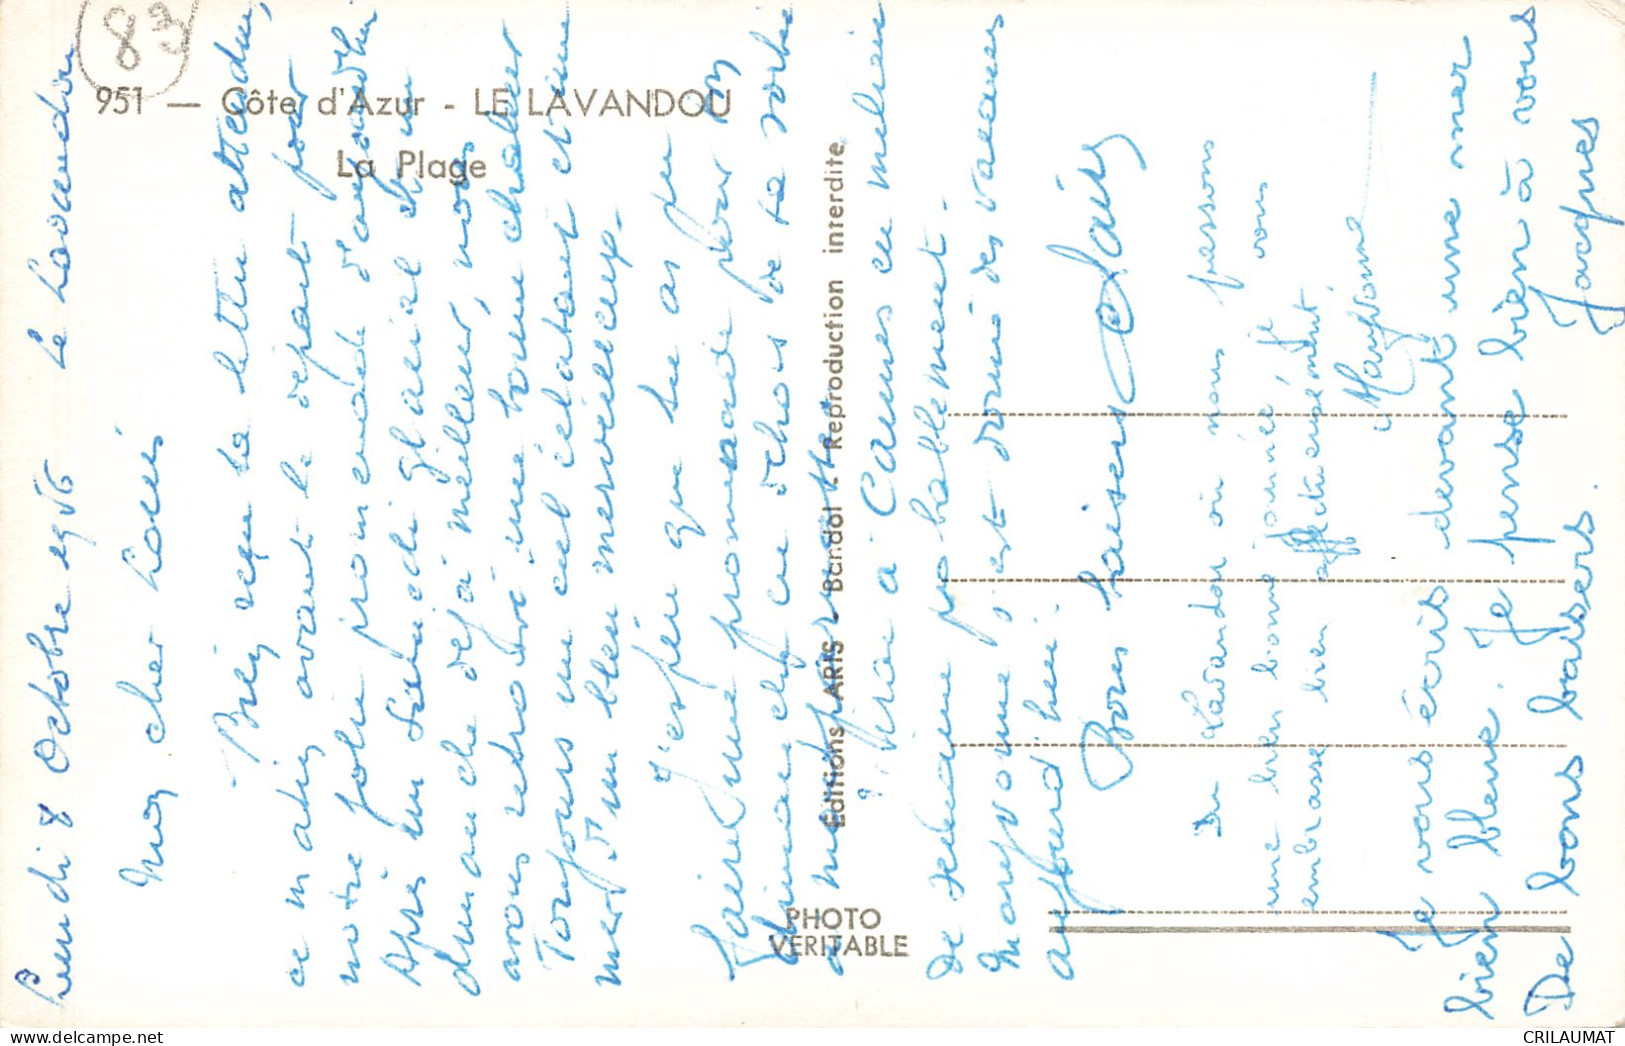 951 — Côte d'Azur - LE LAVANDOU
La Plage
83
Editions ARIS - Bandol - Reproduction interdite
PHOTO
VERITABLE
Lundi 8 Octobre 1956 Le Lavandou
Mon cher Louis
Bien reçu ta lettre attendue,
ce matin avant le départ pour
notre jolie promenade d'aujourd'hui
Après un samedi glacial hier
dimanche déjà meilleur, nous
avons retrouvé une bonne chaleur
Toujours un ciel éclatant et une
mer d'un bleu merveilleux.
J'espère que tu as pu
faire une promenade pour
dimanche en dehors de ta sortie
à
à Cannes en milieu
de semaine probablement.
Maryvonne s'est donné des vacances
aujourd'hui.
Bons baisers
Du Lavandou où nous passons
une bien bonne journée je vous
embrasse bien affectueusement,
Maryvonne
Je vous écris devant une mer
bien bleue. Je pense bien à vous
De bons baisers. Jacques
CRILAUMAT